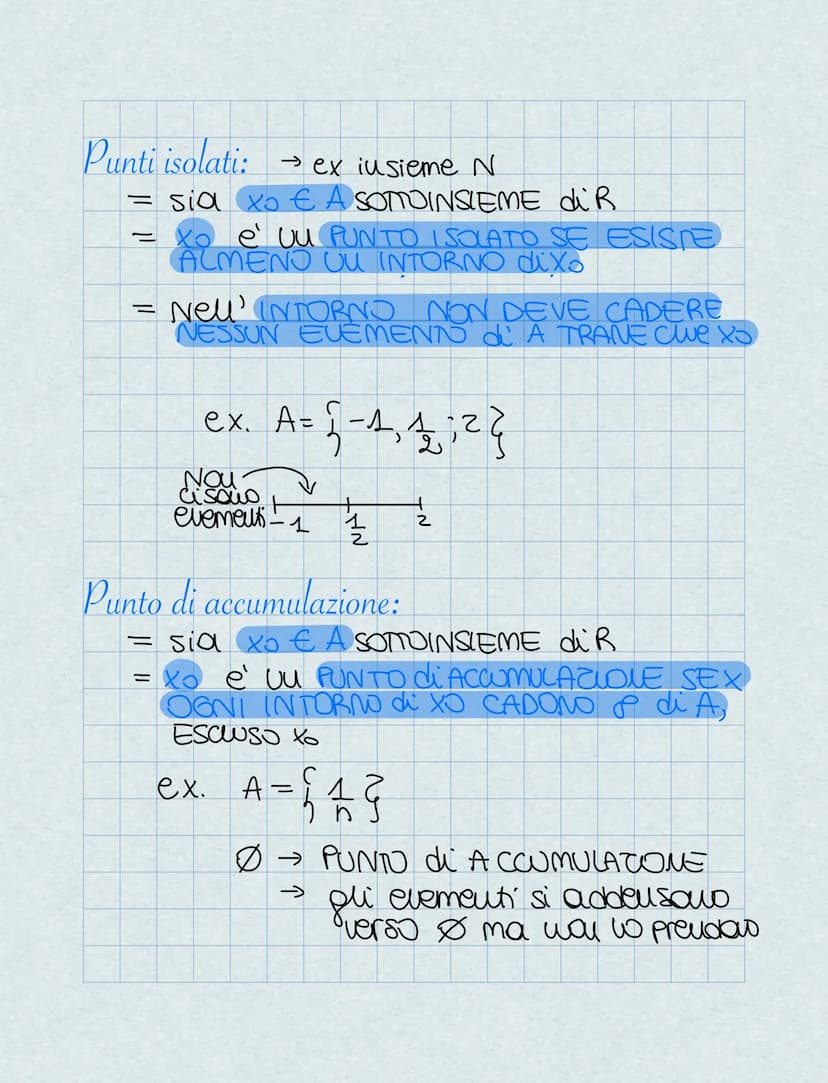 Punti isolati: → ex iusieme N
= sia x0 € A SOTTOINSIEME di R
= x0 e' uu PUNTO ISOLATO SE ESISTE
ALMENO UU INTORNO di X0
= Nell' INTORNO NON DEVE CADERE
NESSUN ELEMENTO di A TRANNE Che x0
ex. A = { -1, 1/2 ; 2 }
Non
ci sono
elementi
-1 1/2 2
Punto di accumulazione:
= sia x0 € A SOTTOINSIEME di R
= x0 e' uu PUNTO di ACCUMULAZIONE SE X
OGNI INTORNO di X0 CADONO ∞ di A,
ESCLUSO x0
ex. A = { 1/n }
Ø → PUNTO di ACCUMULAZIONE
→ gli elementi si addensano
verso Ø ma non lo prendono